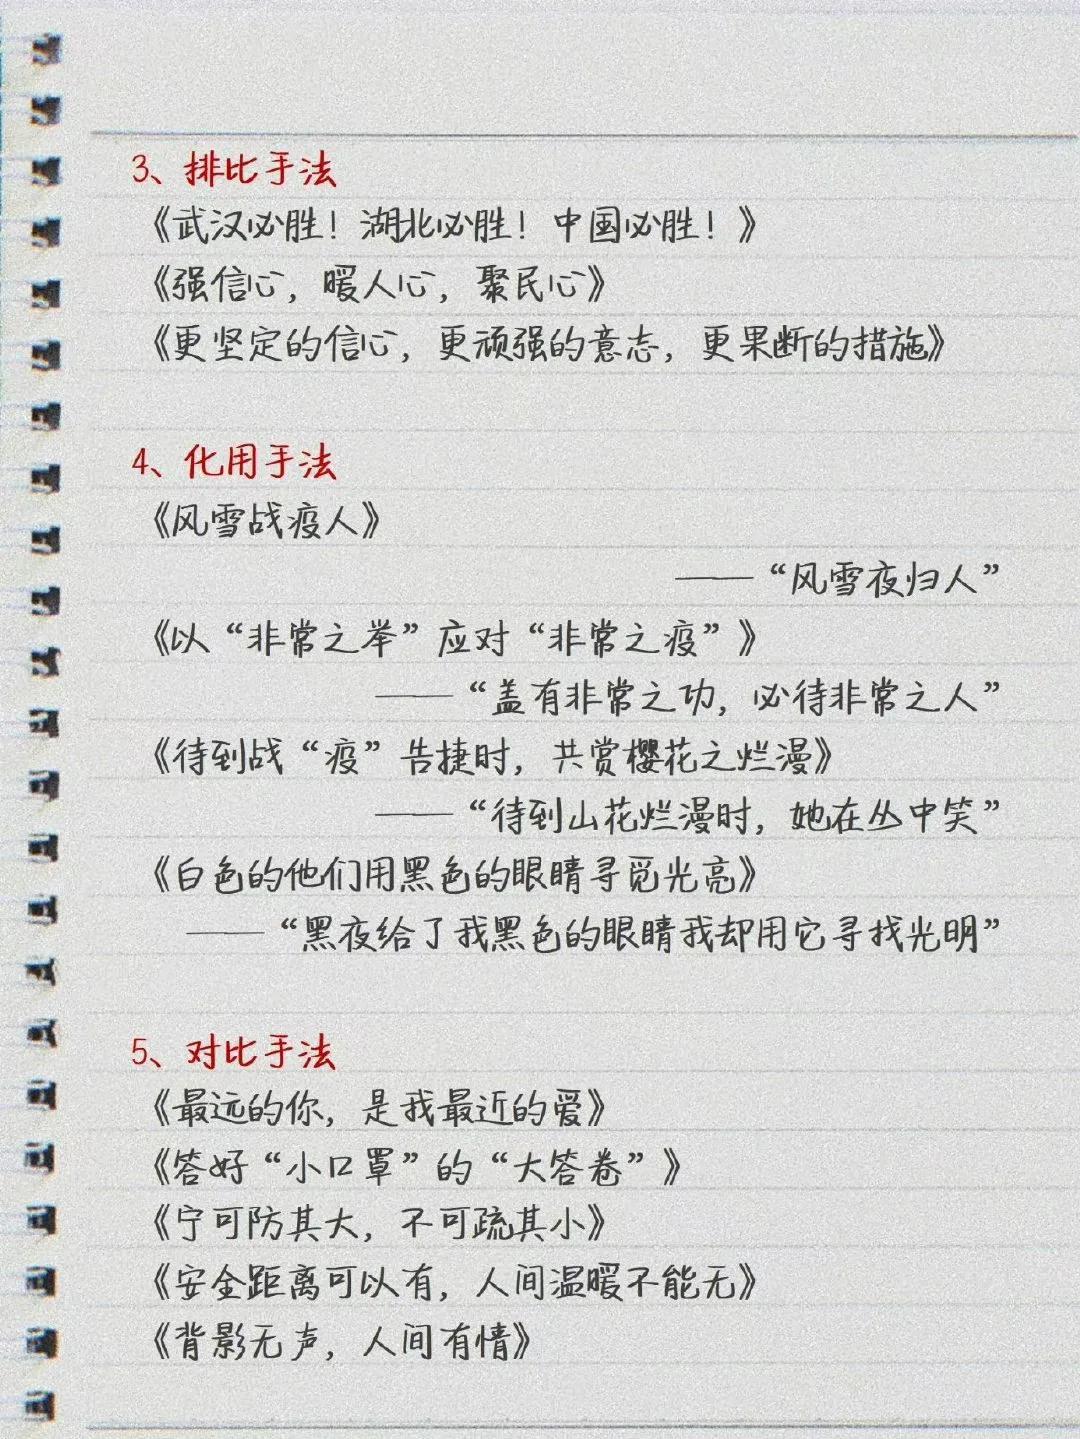 3、排比手法
《武汉必胜！湖北必胜！中国必胜！》
《强信心，暖人心，聚民心》
《更坚定的信心，更顽强的意志，更果断的措施》
4、化用手法
《风雪战疫人》
——“风雪夜归人”
《以“非常之举”应对“非常之疫”》
——“盖有非常之功，必待非常之人”
《待到战“疫”告捷时，共赏樱花之烂漫》
——“待到山花烂漫时，她在丛中笑”
《白色的他们用黑色的眼睛寻觅光亮》
——“黑夜给了我黑色的眼睛我却用它寻找光明”
5、对比手法
《最远的你，是我最近的爱》
《答好“小口罩”的“大答卷”》
《宁可防其大，不可疏其小》
《安全距离可以有，人间温暖不能无》
《背影无声，人间有情》